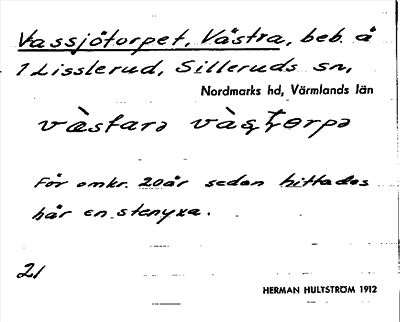 Vassjötorpet, Västra, beb. å
1 Lisslerud, Silleruds sn,
Nordmarks hd, Värmlands län
För omkr. 20 år sedan hittades
här en stenyxa.
21
HERMAN HULTSTRÖM 1912